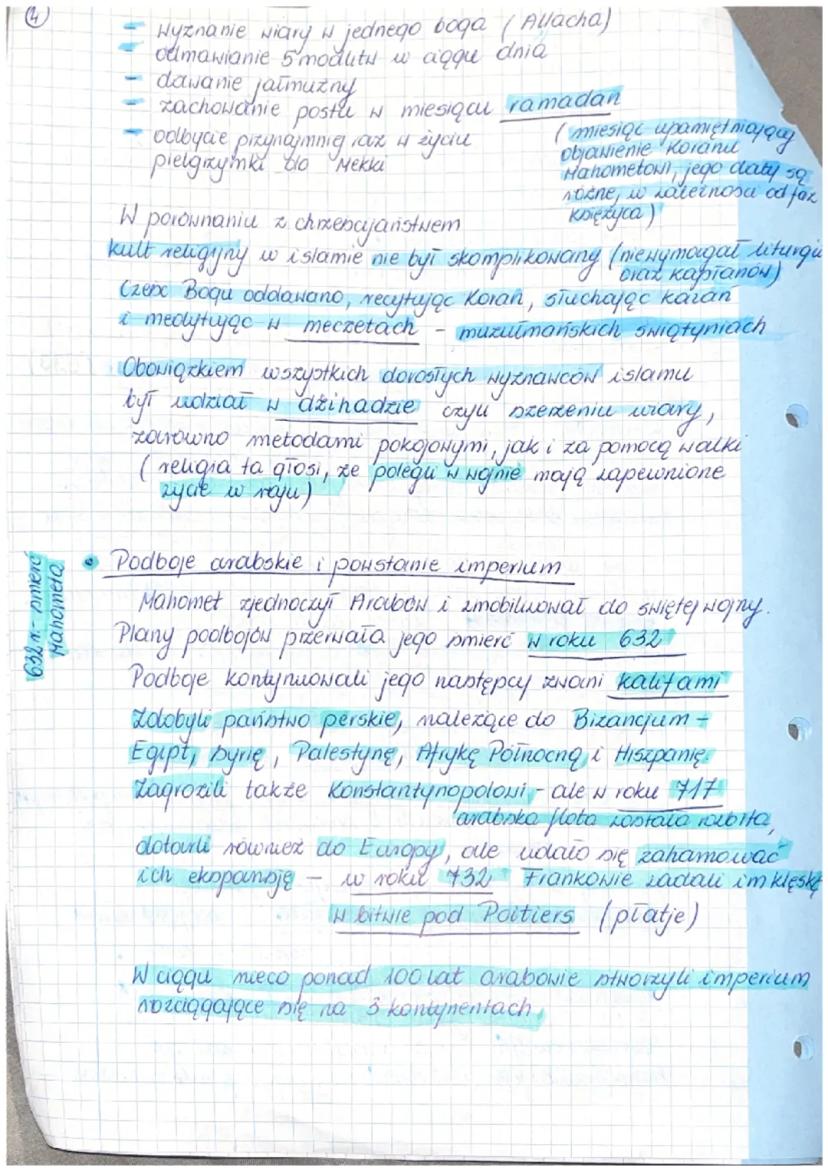 4
- wyznanie wiary w jednego boga (Allacha)
- odmawianie 5 modlitw w ciągu dnia
- dawanie jałmużny
- zachowanie postu w miesiącu ramadan
(miesiąc upamiętniający
objawienie Koranu
Mahometowi, jego daty są
różne, w zależności od faz
księżyca)
- odbycie przynajmniej raz w życiu
pielgrzymki do Mekki
W porównaniu z chrześcijaństwem
kult religijny w islamie nie był skomplikowany (niewymagał liturgii
oraz kapłanów)
Cześć Bogu oddawano, recytując Koran, słuchając kazań
i medytując w meczetach - muzułmańskich świątyniach
Obowiązkiem wszystkich dorosłych wyznawców islamu
był udział w dżihadzie czyli szerzeniu wiary,
zarówno metodami pokojowymi, jak i za pomocą walki
(religia ta głosi, że polegli w wojnie mają zapewnione
życie w raju)
632 r. - śmierć
Mahometa
• Podboje arabskie i powstanie imperium
Mahomet zjednoczył Arabów i zmobilizował do świętej wojny.
Plany podbojów przerwała jego śmierć w roku 632
Podboje kontynuowali jego następcy zwani kalifami
Zdobyli państwo perskie, należące do Bizancjum -
Egipt, Syrię, Palestynę, Afrykę Północną i Hiszpanię.
Zagrozili także Konstantynopolowi - ale w roku 717
arabska flota została rozbita,
dotarli również do Europy, ale udało się zahamować
ich ekspansję - w roku 732 Frankowie zadali im klęskę
w bitwie pod Poitiers (płatje)
W ciągu nieco ponad 100 lat arabowie stworzyli imperium
rozciągające się na 3 kontynentach.